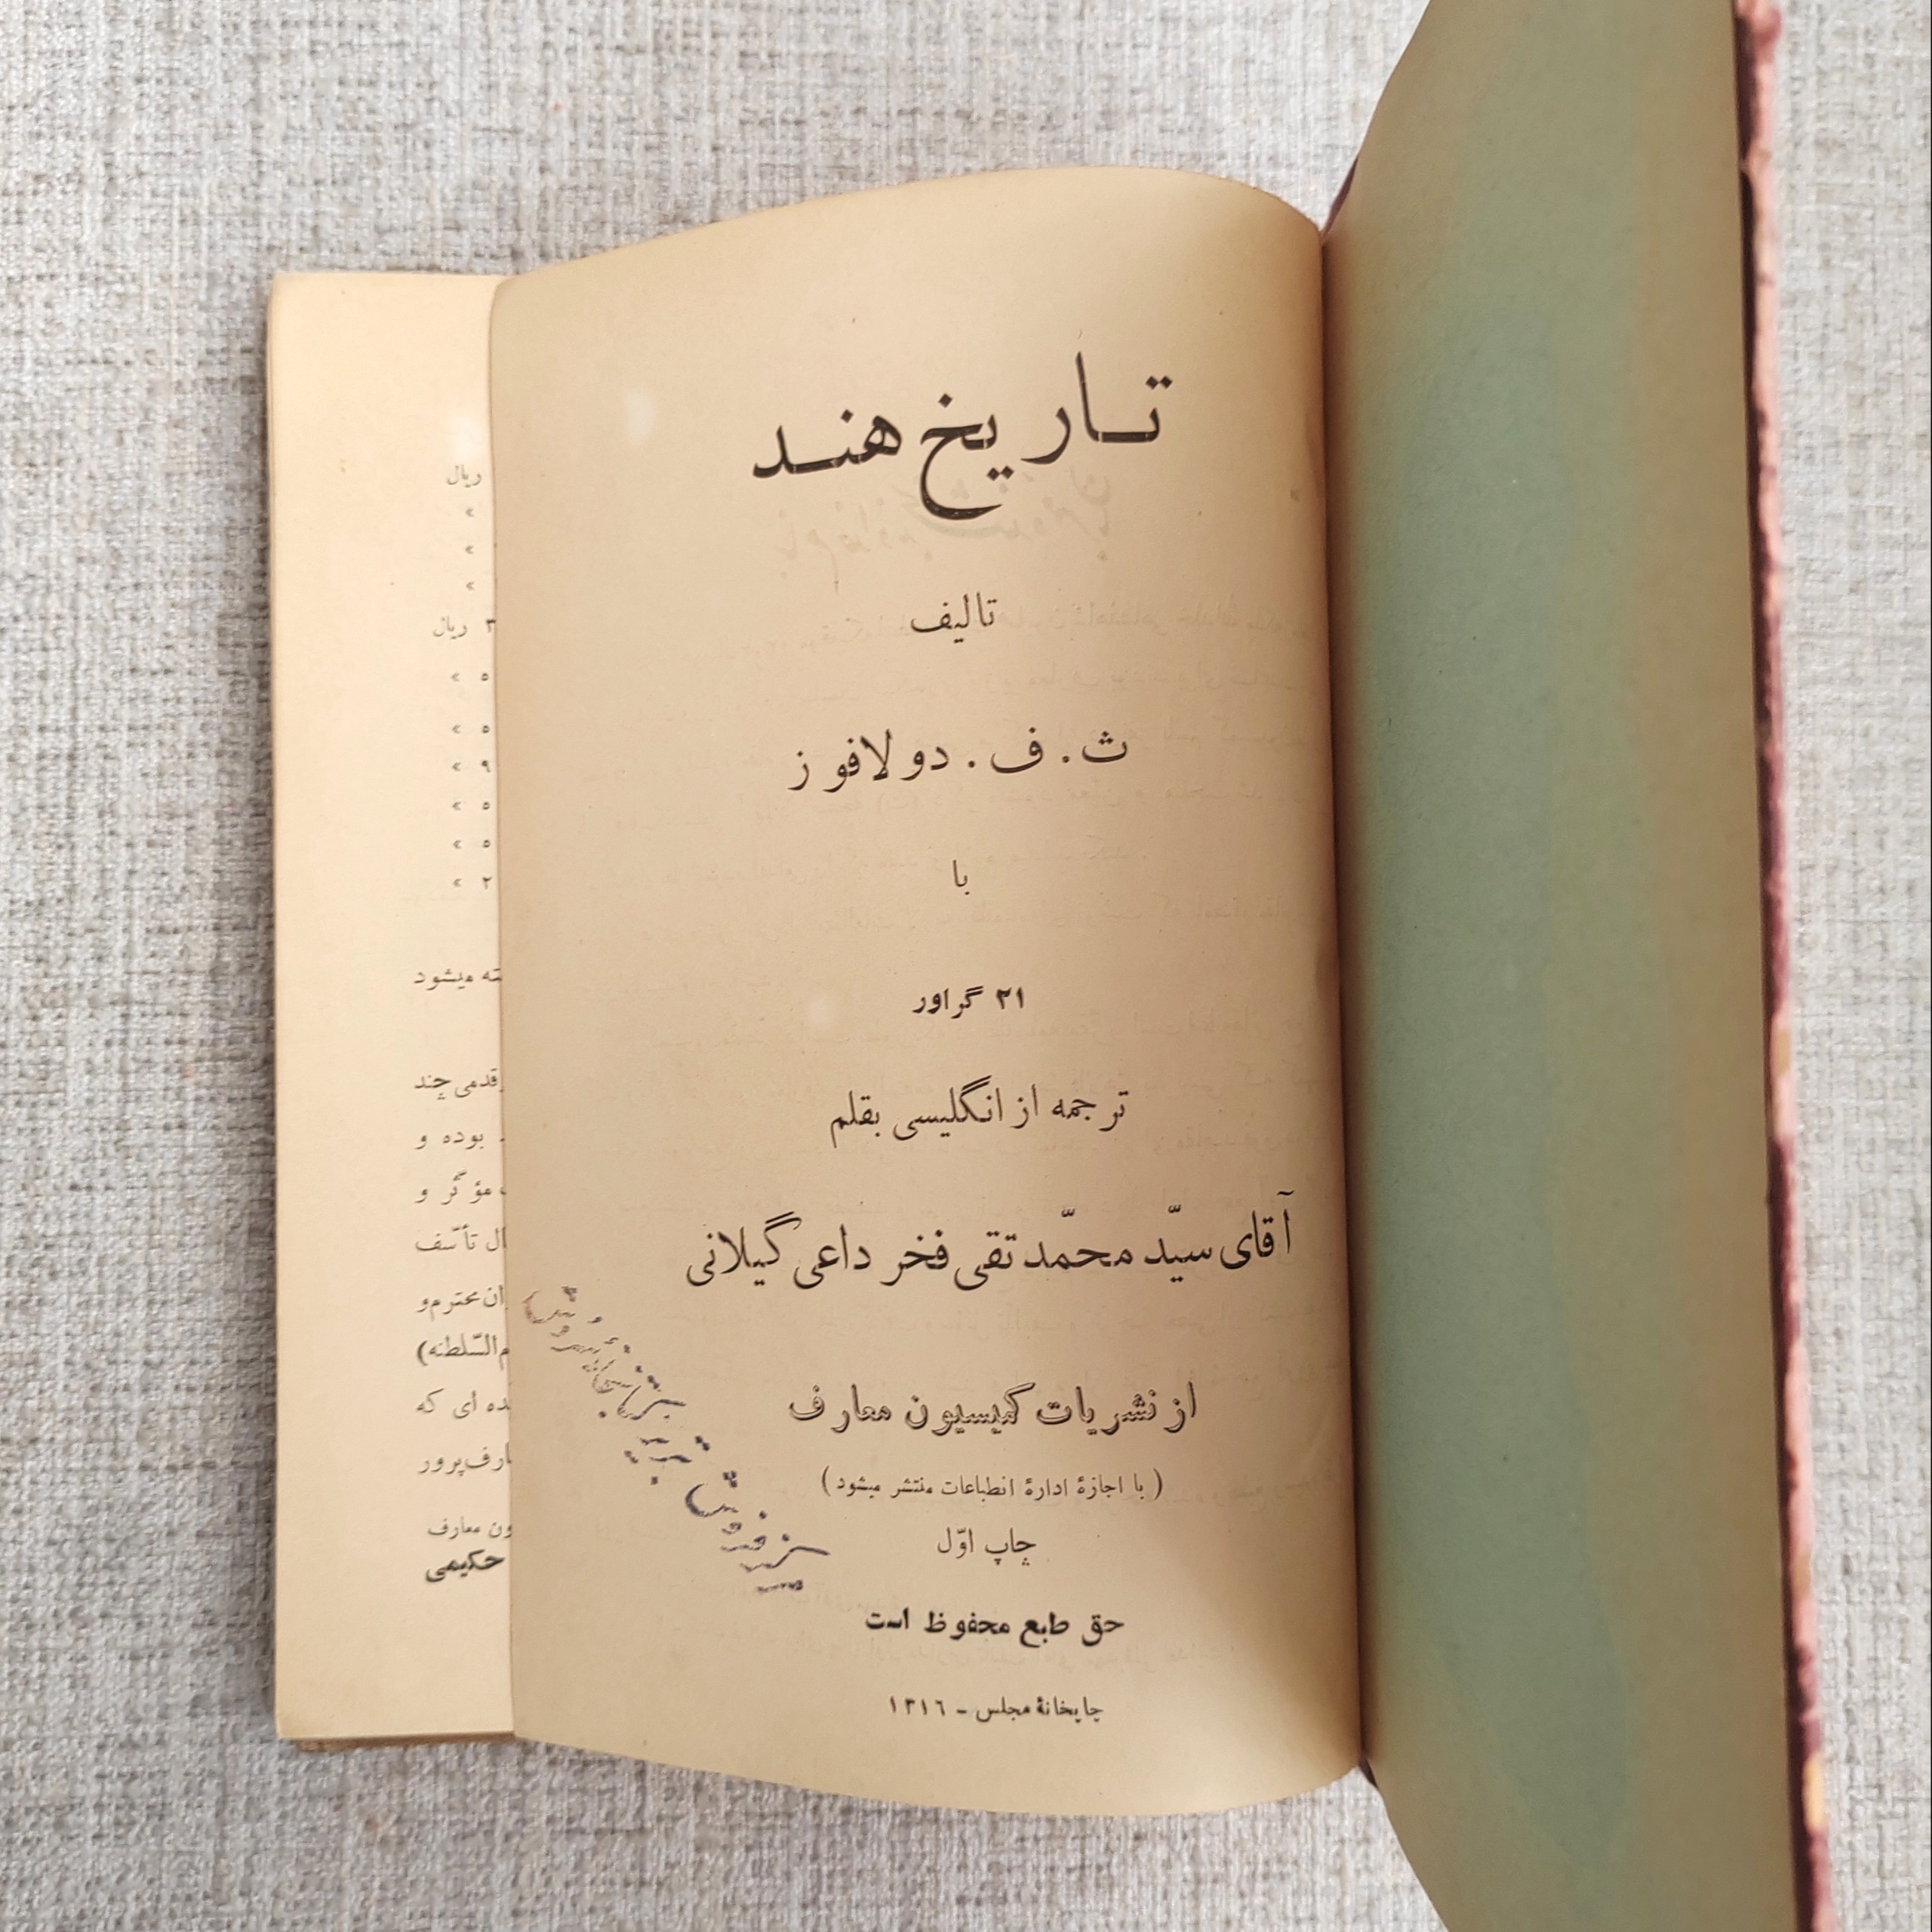 تاریخ هند
تالیف
ث. ف. دولافوز
با
۲۱ گراور
ترجمه از انگلیسی بقلم
آقای سیّد محمّد تقی فخر داعی گیلانی
از نشریات کمیسیون معارف
( با اجازهٔ ادارهٔ انطباعات منتشر میشود )
چاپ اوّل
حق طبع محفوظ است
چاپخانهٔ مجلس - ۱۳۱٦
ریال
»
»
»
۳ ریال
۵ »
۵ »
۹ »
۵ »
۵ »
۲ »
میشود
قدمی چند
بوده و
و
تأسّف
محترم و
السّلطنه)
ای که
پرور
معارف
حکیمی